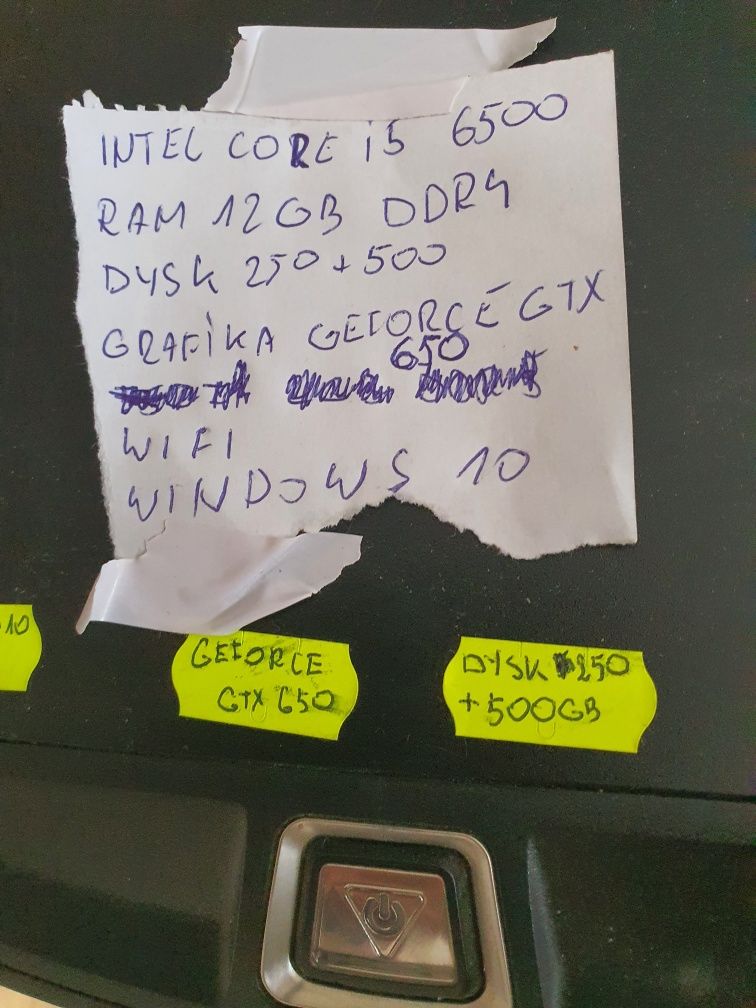 INTEL CORE i5 6500
RAM 12GB DDR4
DYSK 250+500
GRAFIKA GEFORCE GTX
650
WIFI
WINDOWS 10
10
GEFORCE
GTX 650
DYSK 250
+500GB